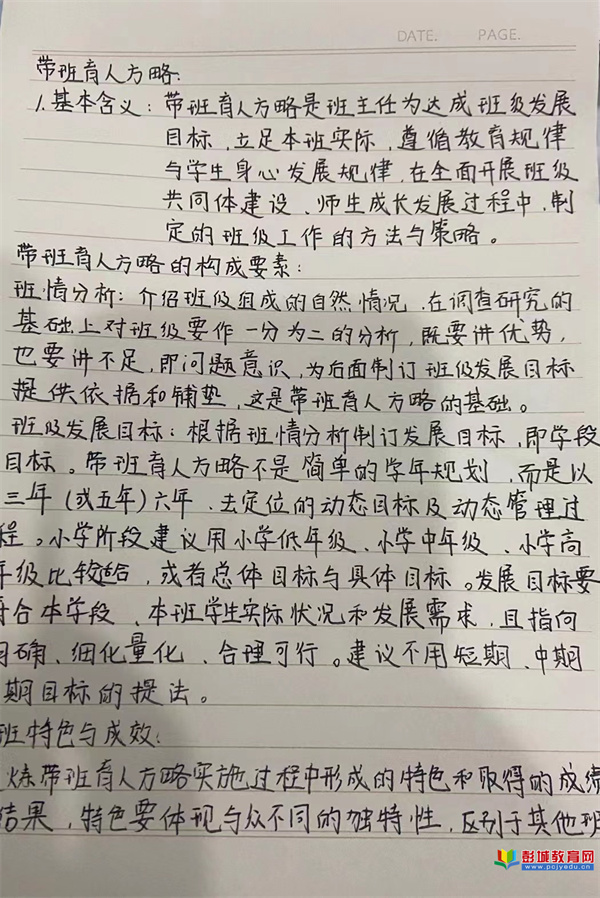 DATE. PAGE.
带班育人方略:
1.基本含义：带班育人方略是班主任为达成班级发展
目标,立足本班实际,遵循教育规律
与学生身心发展规律,在全面开展班级
共同体建设、师生成长发展过程中,制
定的班级工作的方法与策略。
带班育人方略的构成要素：
班情分析：介绍班级组成的自然情况,在调查研究的
基础上对班级要作一分为二的分析,既要讲优势,
也要讲不足,即问题意识,为后面制订班级发展目标
提供依据和铺垫,这是带班育人方略的基础。
班级发展目标：根据班情分析制订发展目标,即学段
目标。带班育人方略不是简单的学年规划,而是以
三年(或五年)六年、去定位的动态目标及动态管理过
程。小学阶段建议用小学低年级、小学中年级、小学高
年级比较适合,或者总体目标与具体目标。发展目标要
符合本学段、本班学生实际状况和发展需求,且指向
明确、细化量化、合理可行。建议不用短期、中期
期目标的提法。
班特色与成效：
炼带班育人方略实施过程中形成的特色和取得的成绩
结果,特色要体现与众不同的独特性,区别于其他班
彭城教育网
www.pcjyedu.cn